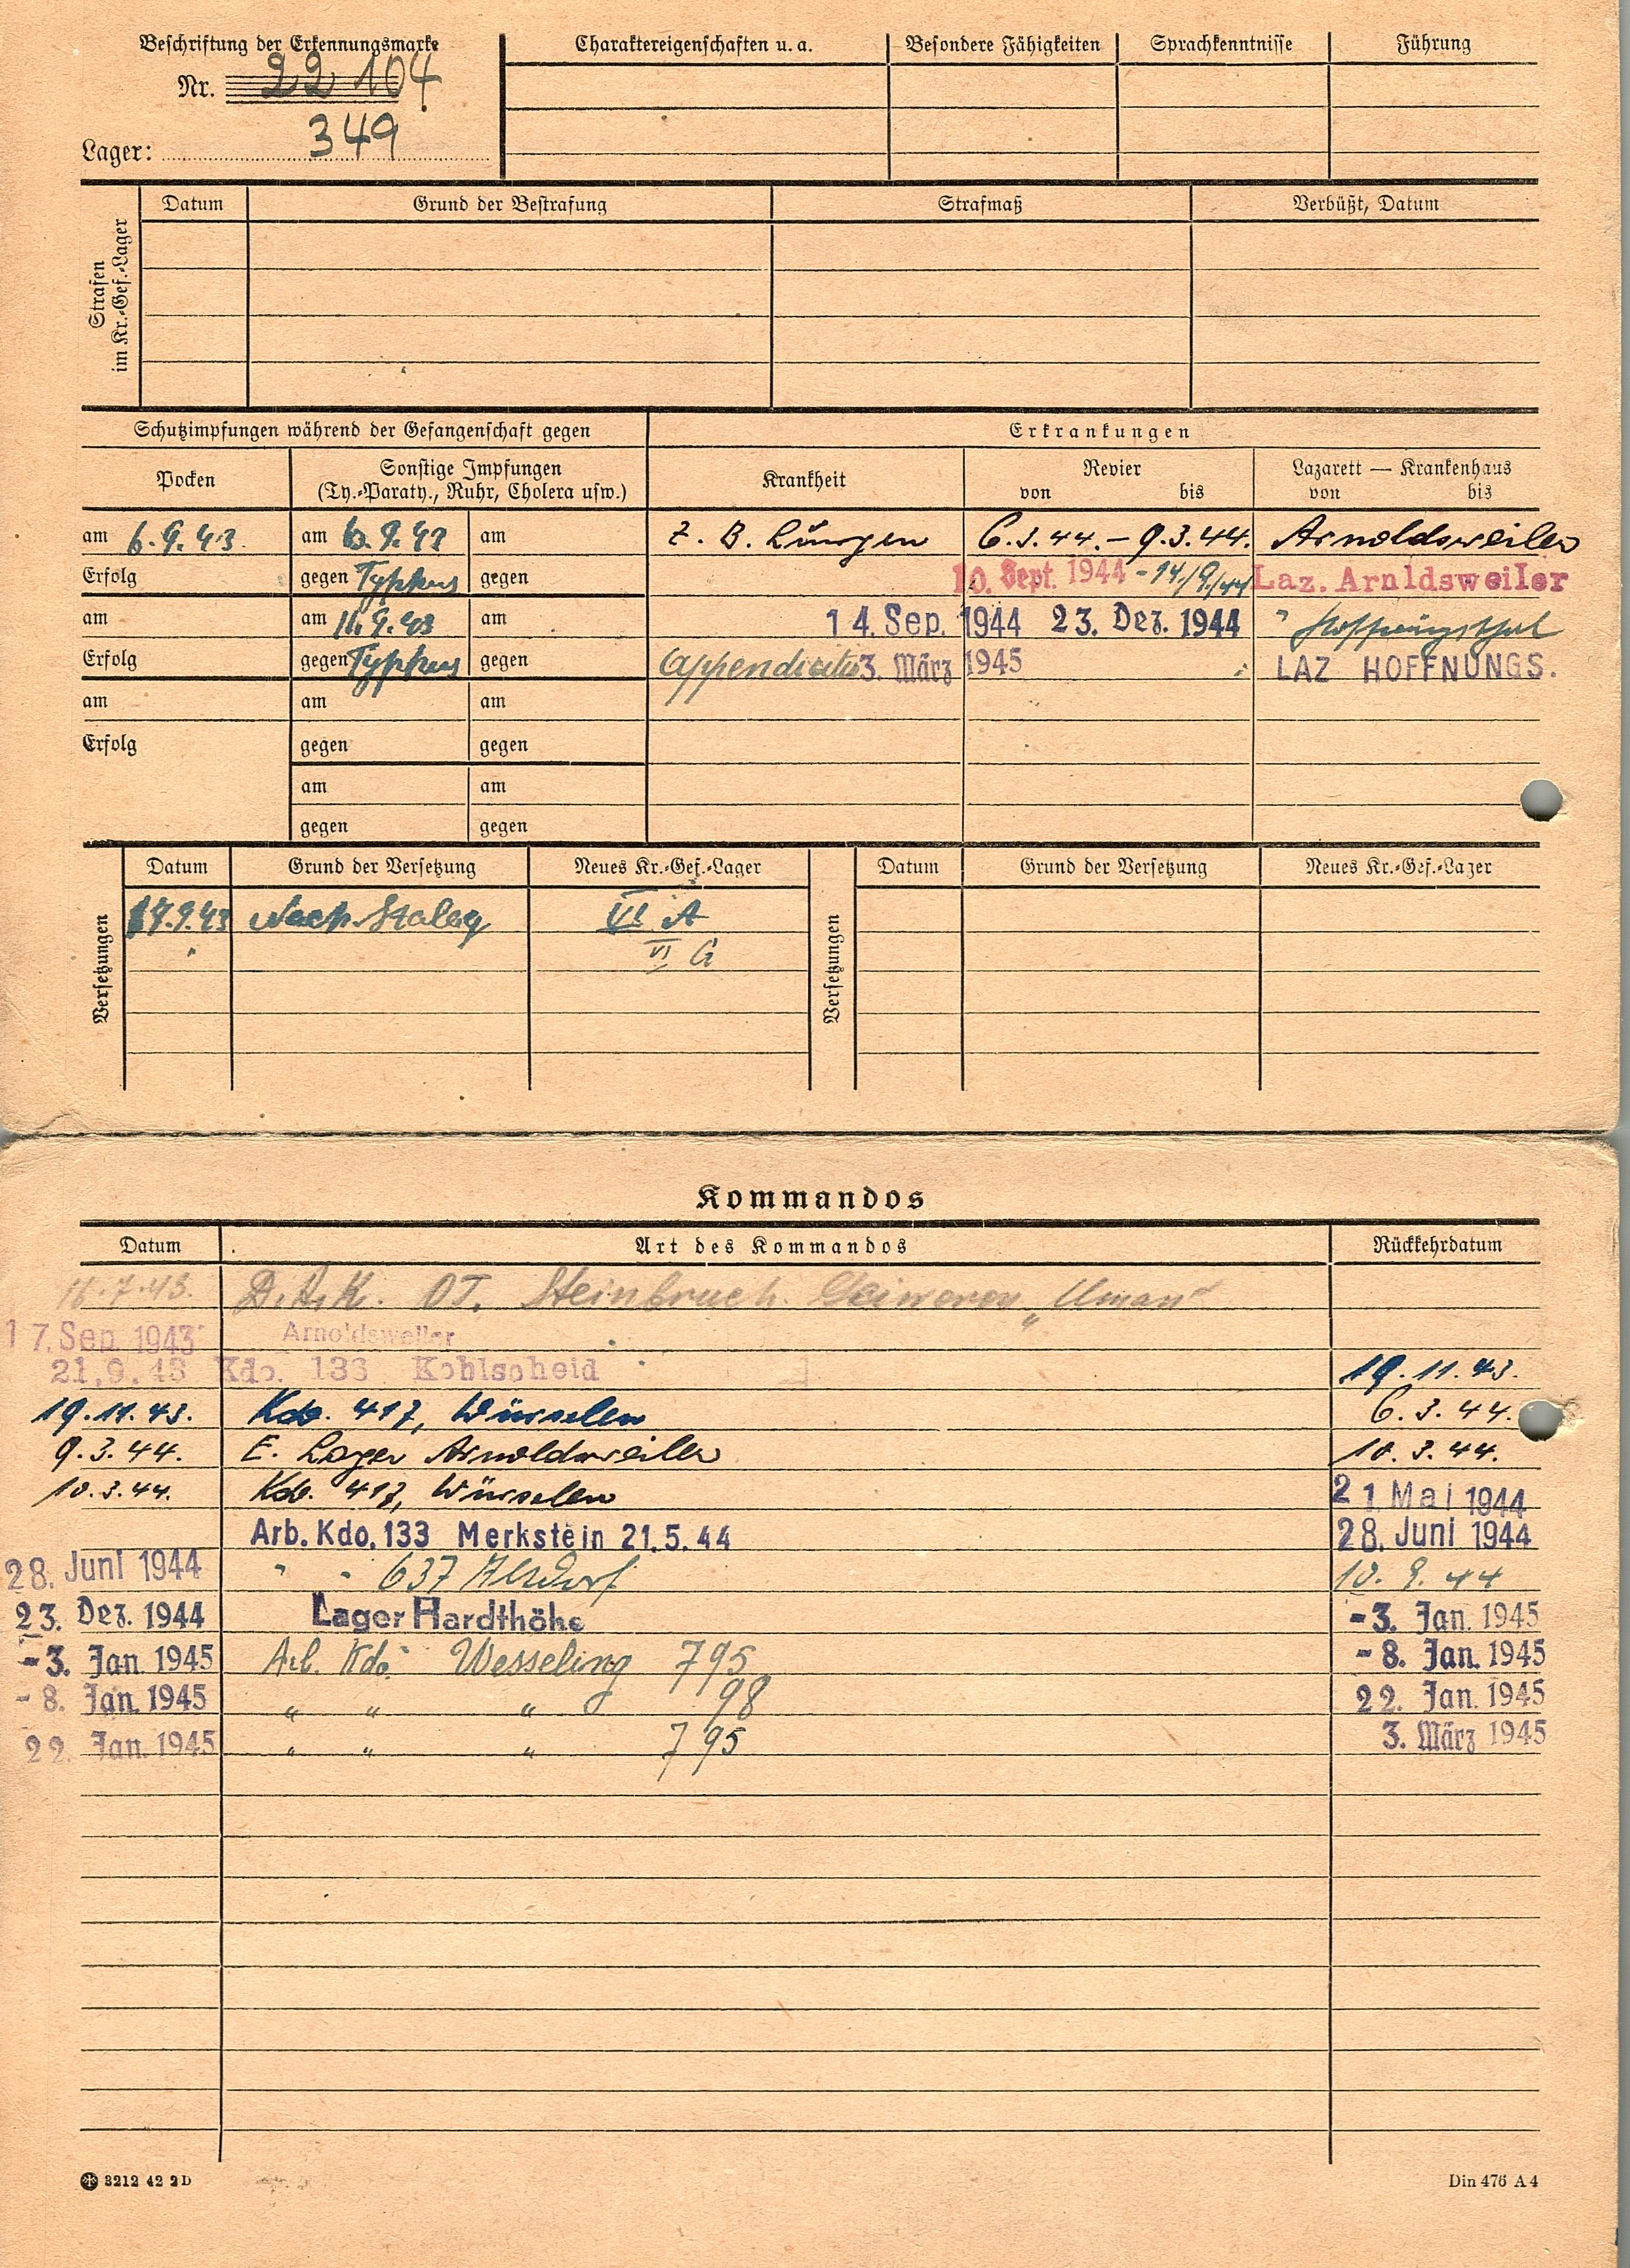 Beschriftung der Erkennungsmarke
Nr. 22 104
Lager: 349
Charaktereigenschaften u. a.
Besondere Fähigkeiten
Sprachkenntnisse
Führung
Strafen im Kr.-Gef.-Lager
Datum
Grund der Bestrafung
Strafmaß
Verbüßt, Datum
Schutzimpfungen während der Gefangenschaft gegen
Erkrankungen
Pocken
Sonstige Impfungen
(Ty.-Paraty., Ruhr, Cholera usw.)
Krankheit
Revier
von bis
Lazarett — Krankenhaus
von bis
am 6.9.43. am 6.9.43 am Z. B. Lungen 6.3.44. – 9.3.44. Arnoldsweiler
Erfolg gegen Typhus gegen 10. Sept. 1944 - 14/9/44 Laz. Arnldsweiler
am am 11.9.43 am 14. Sep. 1944 23. Dez. 1944 " Hoffnungsthal
Erfolg gegen Typhus gegen Appendicitis 3. März 1945 LAZ HOFFNUNGS.
am am am
Erfolg gegen gegen
am am
gegen gegen
Versetzungen
Datum Grund der Versetzung Neues Kr.-Gef.-Lager
17.9.43 Nach Stalag VI A
VI G
Versetzungen
Datum Grund der Versetzung Neues Kr.-Gef.-Lager
Kommandos
Datum Art des Kommandos Rückkehrdatum
18.7.43. OT. Steinbruch "Uman"
17. Sep. 1943 Arnoldsweiler
21.9.43 Kdo. 133 Kohlscheid 19.11.43.
19.11.43. Kdo. 417, Würselen 6.3.44.
9.3.44. E. Lager Arnoldsweiler 10.3.44.
10.3.44. Kdo. 417, Würselen 21 Mai 1944
Arb. Kdo. 133 Merkstein 21.5.44 28. Juni 1944
28. Juni 1944 " " 637 Alsdorf 10.9.44
23. Dez. 1944 Lager Hardthöhe -3. Jan. 1945
-3. Jan. 1945 Arb. Kdo. Wesseling 795 -8. Jan. 1945
-8. Jan. 1945 " " " 98 22. Jan. 1945
22. Jan. 1945 " " " 795 3. März 1945
3212 42 2 D
Din 476 A 4